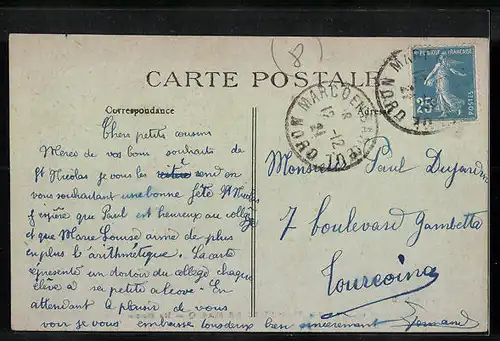 (8)
CARTE POSTALE
Correspondance
Chers petits cousins
Merci de vos bons souhaits de
St Nicolas je vous les rend en
vous souhaitant une bonne fête St Nicolas
j'espère que Paul est heureux au collège
et que Marie Louise aime de plus
en plus le arithmétique. La carte
représente un dortoir du collège chaque
élève a sa petite alcove. En
attendant le plaisir de vous
voir je vous embrasse tous deux bien sincèrement
Monsieur Paul Dujardin
7 boulevard Gambetta
Tourcoing
MARCQ EN BAROEUL
NORD
12
21
25c
POSTES